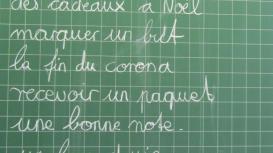 des cadeaux à Noël
marquer un but
la fin du corona
recevoir un paquet
une bonne note.